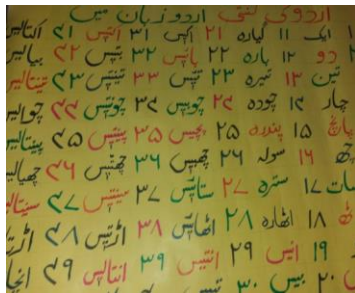 اردو کی گنتی اردو زبان میں
۱ ایک ۱۱ گیارہ ۲۱ اکیس ۳۱ اکتیس ۴۱ اکتالیس
دو ۱۲ بارہ ۲۲ بائیس ۳۲ بتیس ۴۲ بیالیس
تین ۱۳ تیرہ ۲۳ تیئس ۳۳ تینتیس ۴۳ تینتالیس
چار ۱۴ چودہ ۲۴ چوبیس ۳۴ چونتیس ۴۴ چوالیس
پانچ ۱۵ پندرہ ۲۵ پچیس ۳۵ پینتیس ۴۵ پینتالیس
چھ ۱۶ سولہ ۲۶ چھبیس ۳۶ چھتیس ۴۶ چھیالیس
سات ۱۷ سترہ ۲۷ ستائیس ۳۷ سینتیس ۴۷ سینتالیس
۱۸ اٹھارہ ۲۸ اٹھائیس ۳۸ اڑتیس ۴۸
۱۹ انیس ۲۹ انتیس ۳۹ انتالیس ۴۹
۲۰ بیس ۳۰ تیس